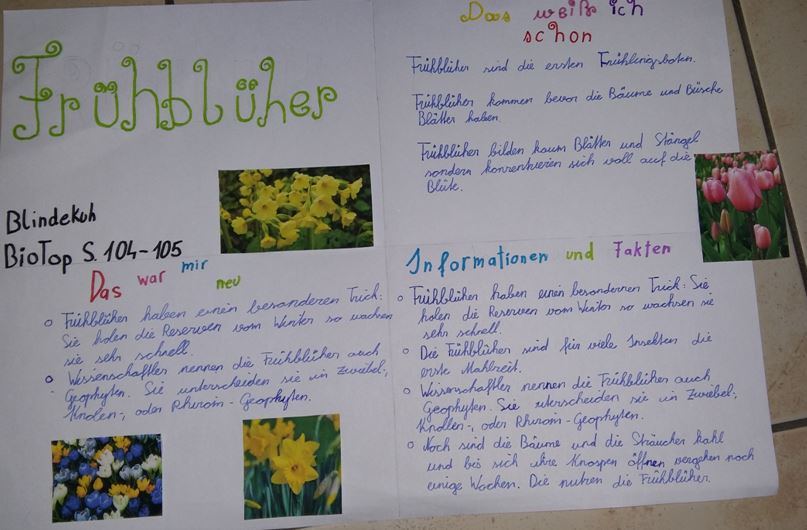 Frühblüher
Blindekuh
BioTop S. 104-105
Das weiß ich
schon
Frühblüher sind die ersten Frühlingsboten.
Frühblüher kommen bevor die Bäume und Büsche
Blätter haben.
Frühblüher bilden kaum Blätter und Stängel
sondern konzentrieren sich voll auf die
Blüte.
Das war mir neu
Frühblüher haben einen besonderen Trick:
Sie holen die Reserven vom Winter so wachsen
sie sehr schnell.
Wissenschaftler nennen die Frühblüher auch
Geophyten. Sie unterscheiden sie in Zwiebel-,
Knolen-, oder Rhizom-Geophyten.
Informationen und Fakten
Frühblüher haben einen besondernen Trick: Sie
holen die Reserven vom Winter so wachsen sie
sehr schnell.
Die Frühblüher sind für viele Insekten die
erste Mahlzeit.
Wissenschaftler nennen die Frühblüher auch
Geophyten. Sie uterscheiden sie in Zwiebel-,
Knollen-, oder Rhizom-Geophyten.
Noch sind die Bäume und die Sträucher kahl
und bis sich ihre Knospen öffnen vergehen noch
einige Wochen. Die nutzen die Frühblüher.